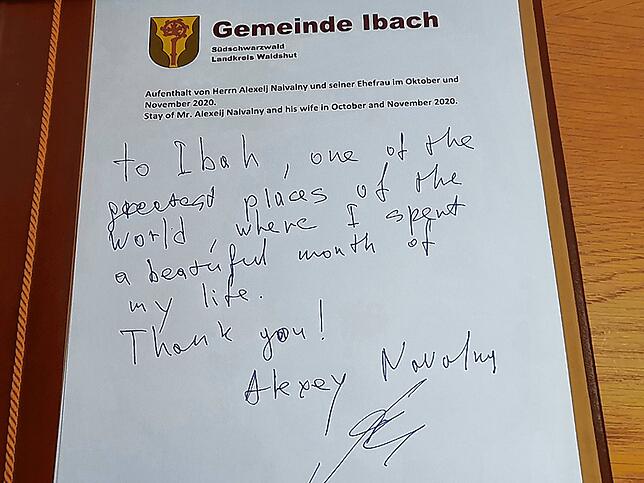 Gemeinde Ibach
Südschwarzwald
Landkreis Waldshut
Aufenthalt von Herrn Alexeij Naivalny und seiner Ehefrau im Oktober und
November 2020.
Stay of Mr. Alexeij Naivalny and his wife in October and November 2020.
to Ibah, one of the
greatest places of the
world, where I spent
a beatuful month of
my life.
Thank you!
Alexey Navalny